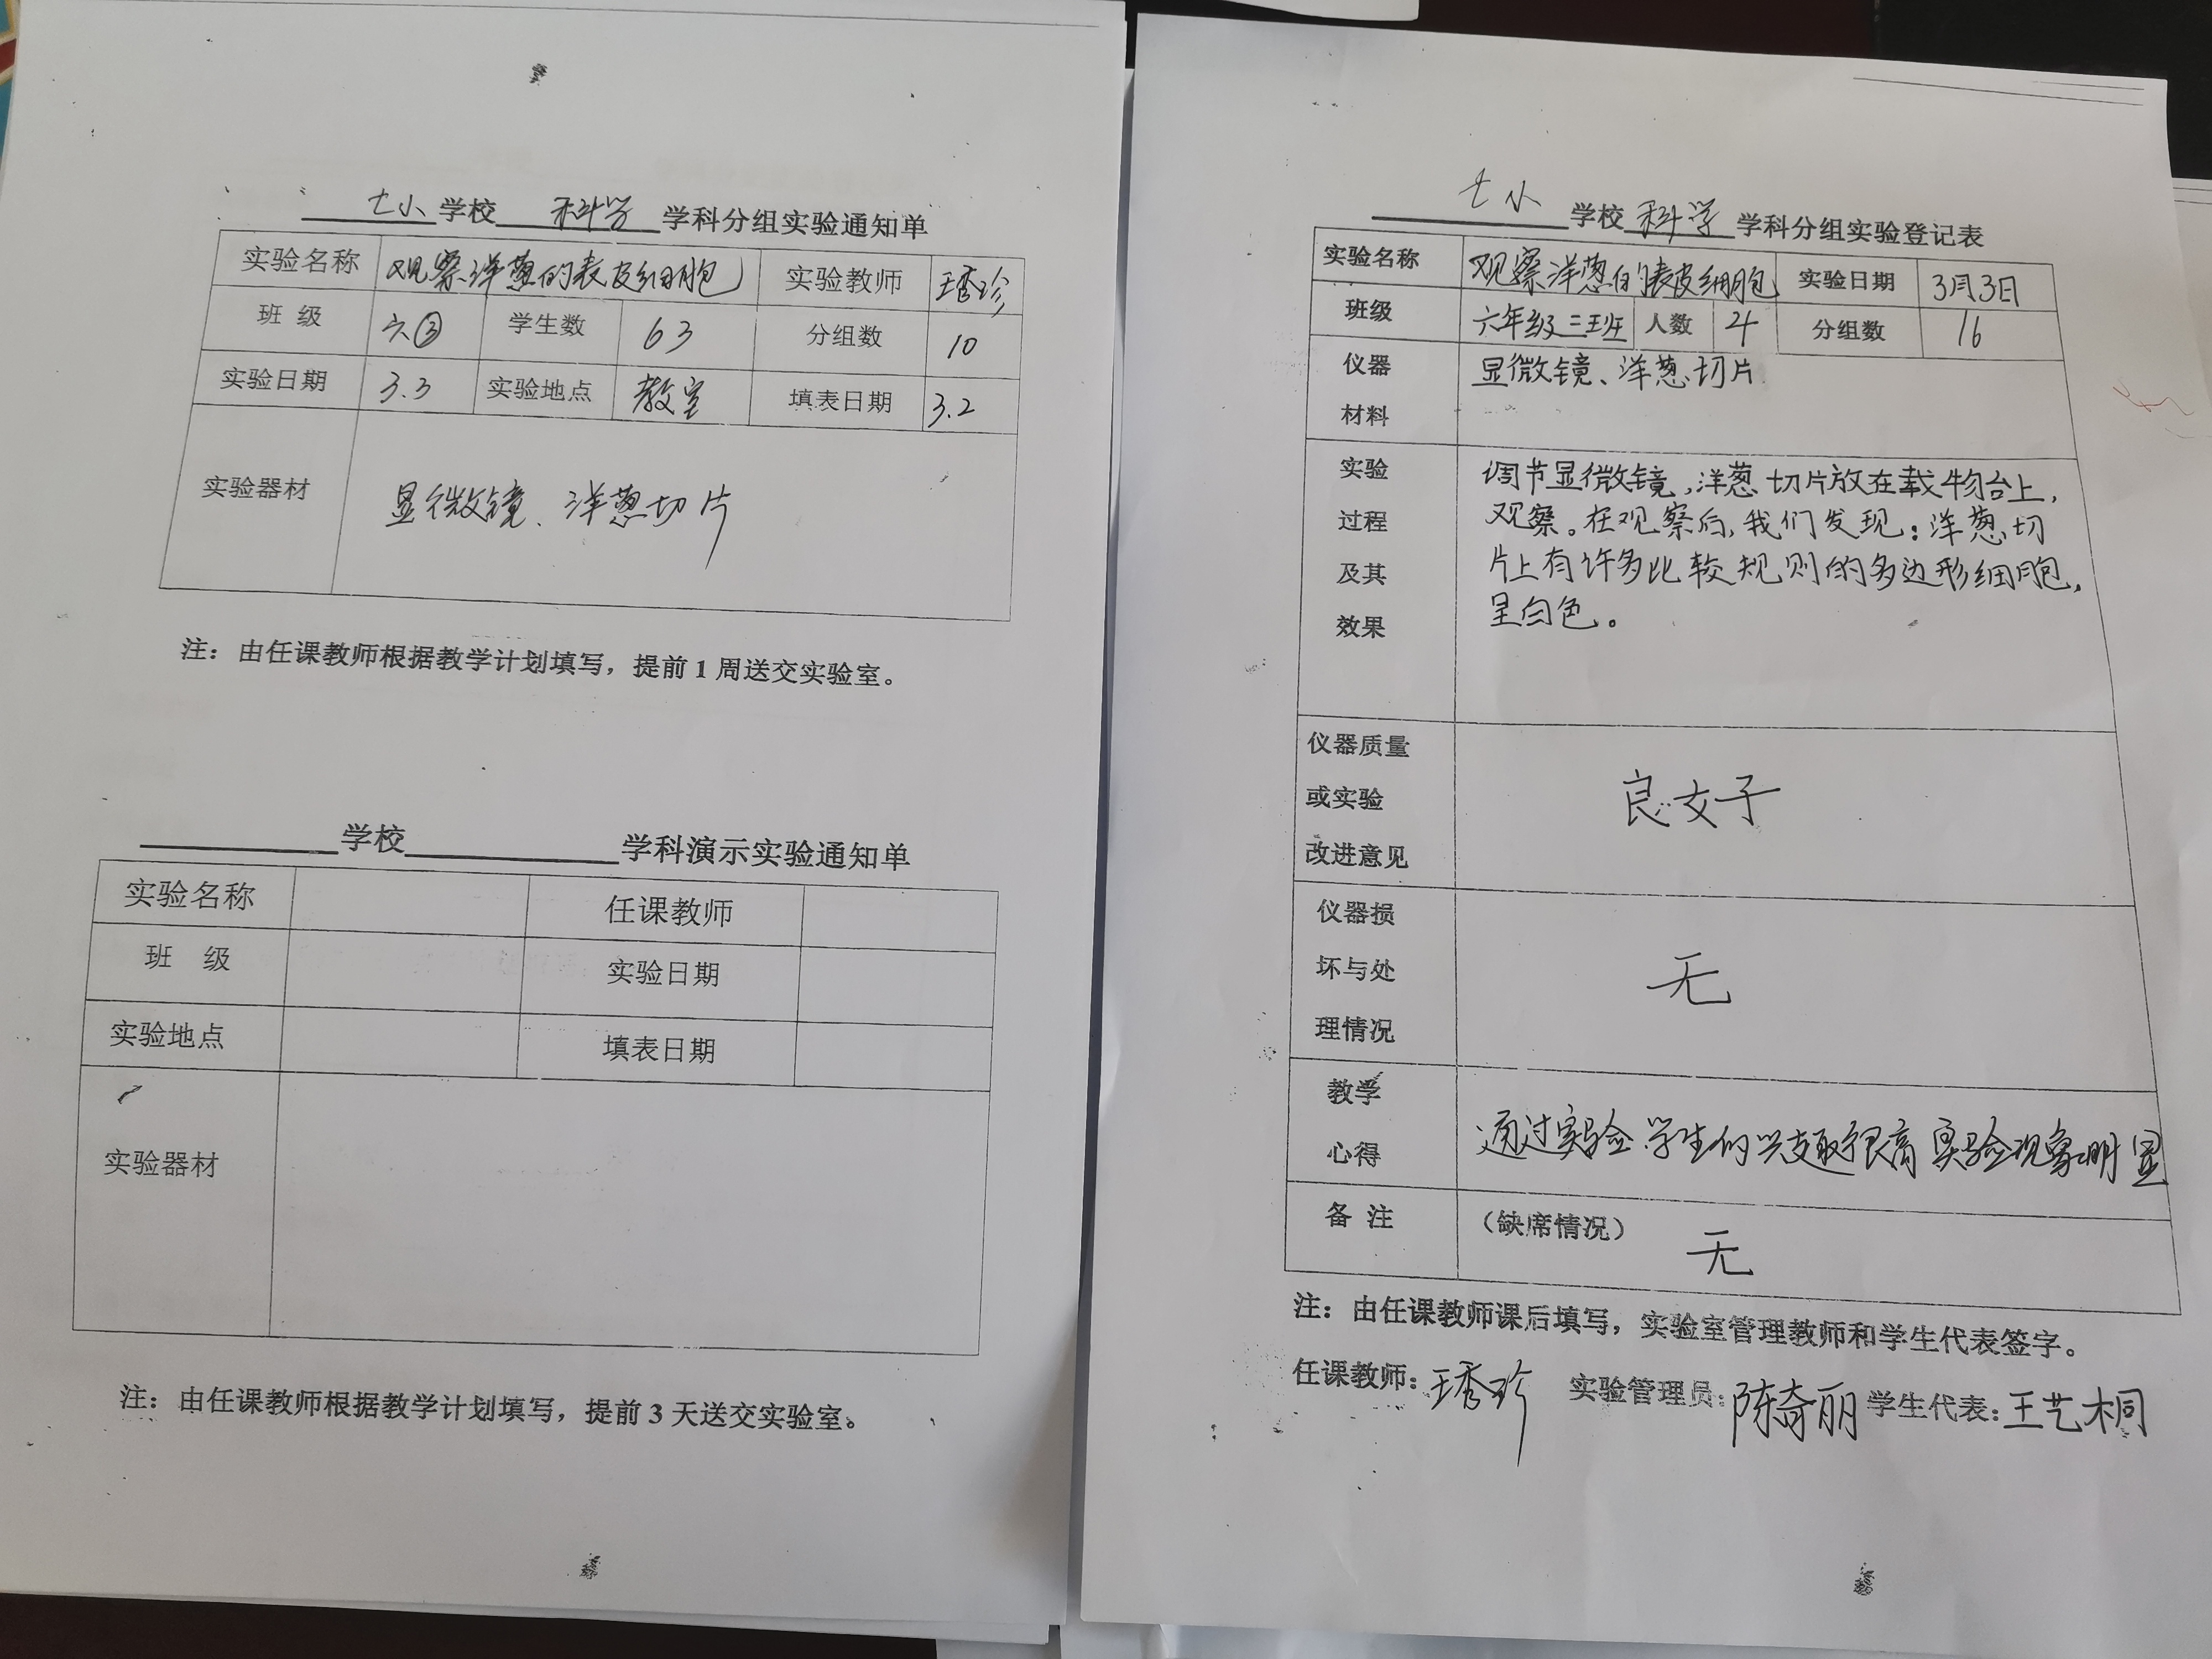 七小学校 科学 学科分组实验通知单
实验名称 观察洋葱的表皮细胞 实验教师 王秀珍
班 级 六③ 学生数 63 分组数 10
实验日期 3.3 实验地点 教室 填表日期 3.2
实验器材 显微镜、洋葱切片
注：由任课教师根据教学计划填写，提前1周送交实验室。
学校 学科演示实验通知单
实验名称 任课教师
班 级 实验日期
实验地点 填表日期
实验器材
注：由任课教师根据教学计划填写，提前3天送交实验室。
七小 学校 科学 学科分组实验登记表
实验名称 观察洋葱的表皮细胞 实验日期 3月3日
班级 六年级三班 人数 4 分组数 16
仪器 显微镜、洋葱切片
材料
实验 调节显微镜,洋葱切片放在载物台上,
过程 观察。在观察后,我们发现:洋葱切
及其 片上有许多比较规则的多边形细胞,
效果 呈白色。
仪器质量
或实验 良好
改进意见
仪器损
坏与处 无
理情况
教学
心得 通过实验学生的兴趣很高实验现象明显
备 注 （缺席情况） 无
注：由任课教师课后填写，实验室管理教师和学生代表签字。
任课教师：王秀珍 实验管理员：陈奇丽 学生代表：王艺桐